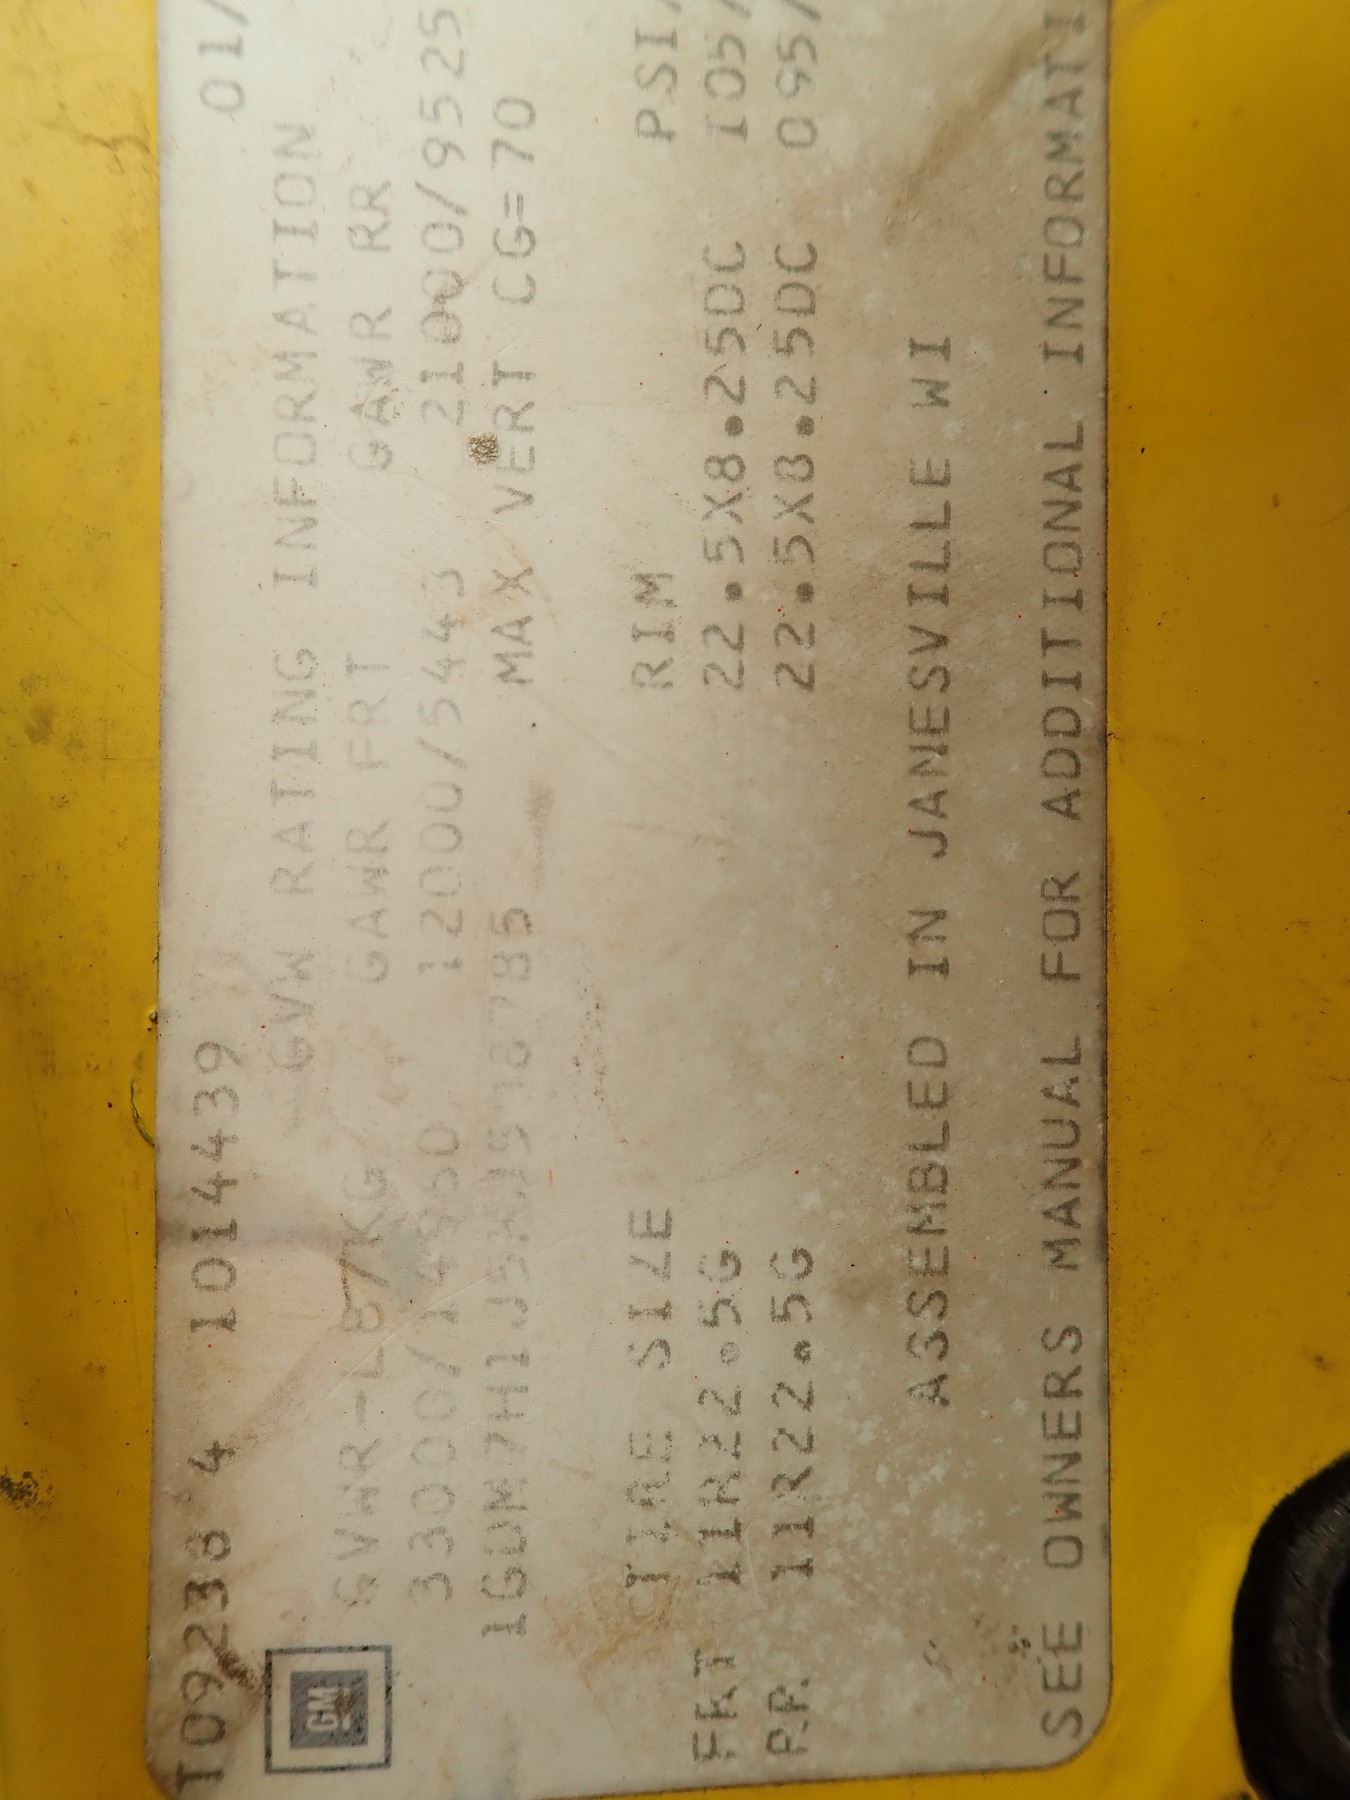 T09238 4 1014439 01/
GM
GVW RATING INFORMATION
GVWR-LB/KG GAWR FRT GAWR RR
33000/14950 12000/5443 21000/9525
MAX VERT CG=70
TIRE SIZE RIM PSI/
FRT 11R22.5G 22.5X8.25DC 105/
RR 11R22.5G 22.5X8.25DC 095/
ASSEMBLED IN JANESVILLE WI
SEE OWNERS MANUAL FOR ADDITIONAL INFORMATI